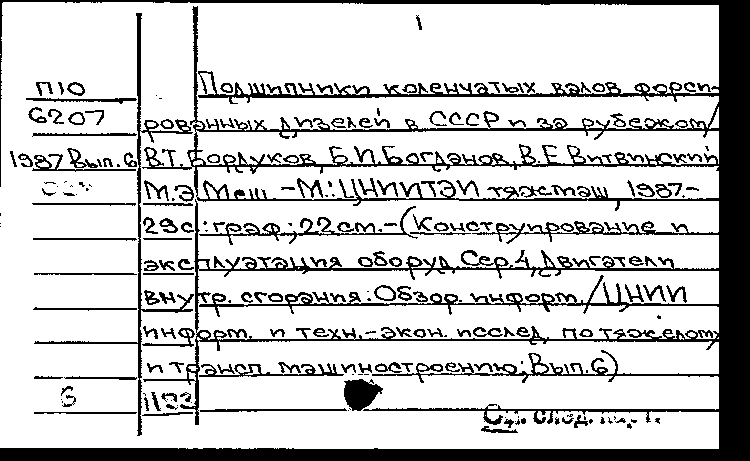 1
П10 Подшипники коленчатых валов форси-
6207 рованных дизелей в СССР и за рубежом/
1987 Вып.6 В.Т.Бордуков, Б.И.Богданов, В.Е.Витвинский,
М.Э.Меш. -М.:ЦНИИТЭИтяжмаш, 1987.-
29с.:граф.; 22см.-(Конструирование и
эксплуатация оборуд. Сер.4, Двигатели
внутр. сгорания: Обзор. информ. / ЦНИИ
информ. и техн.-экон. исслед. по тяжелому
и трансп. машиностроению; Вып.6)
6
См. след. карт.